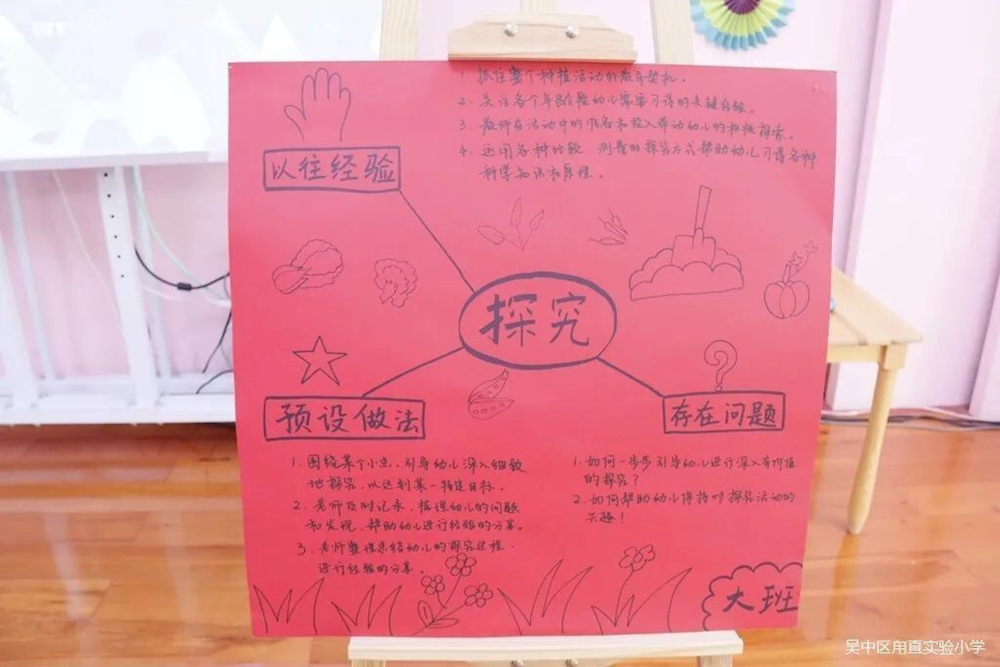 1. 抓住整个种植活动的教育契机。
2. 关注各个年龄段幼儿需要习得的关键经验。
3. 教师在活动中的准备和投入带动幼儿的积极探索。
4. 运用各种比较、测量的探究方式帮助幼儿习得各种
科学知识和原理。
以往经验
探究
预设做法
存在问题
1. 围绕某个小点,引导幼儿深入细致
地探究,以达到某一特定目标。
2. 老师及时记录、梳理幼儿的问题
和发现,帮助幼儿进行经验的分享。
3. 老师整理总结幼儿的探究过程,
进行经验的分享。
1. 如何一步步引导幼儿进行深入有价值
的探究?
2. 如何帮助幼儿保持对探究活动的
兴趣?
大班
吴中区甪直实验小学